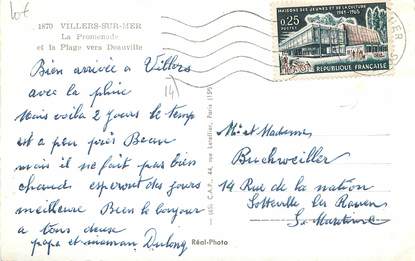 1870 VILLERS-SUR-MER
La Promenade
et la Plage vers Deauville
Bien arrivée a Villers
avec la pluie
Mais voila 2 jours le temps
est a peu près Beau
mais il ne fait pas bien
chaud esperont des jours
meilleure Bien le bonjour
a tous deux
papa et maman Dulong
Réal-Photo
MAISONS DES JEUNES ET DE LA CULTURE
1941-1965
0,25
POSTES
RÉPUBLIQUE FRANÇAISE
Mr et Madame
Buchweiller
14 Rue de la nation
Sotteville les Rouen
S. Maritime